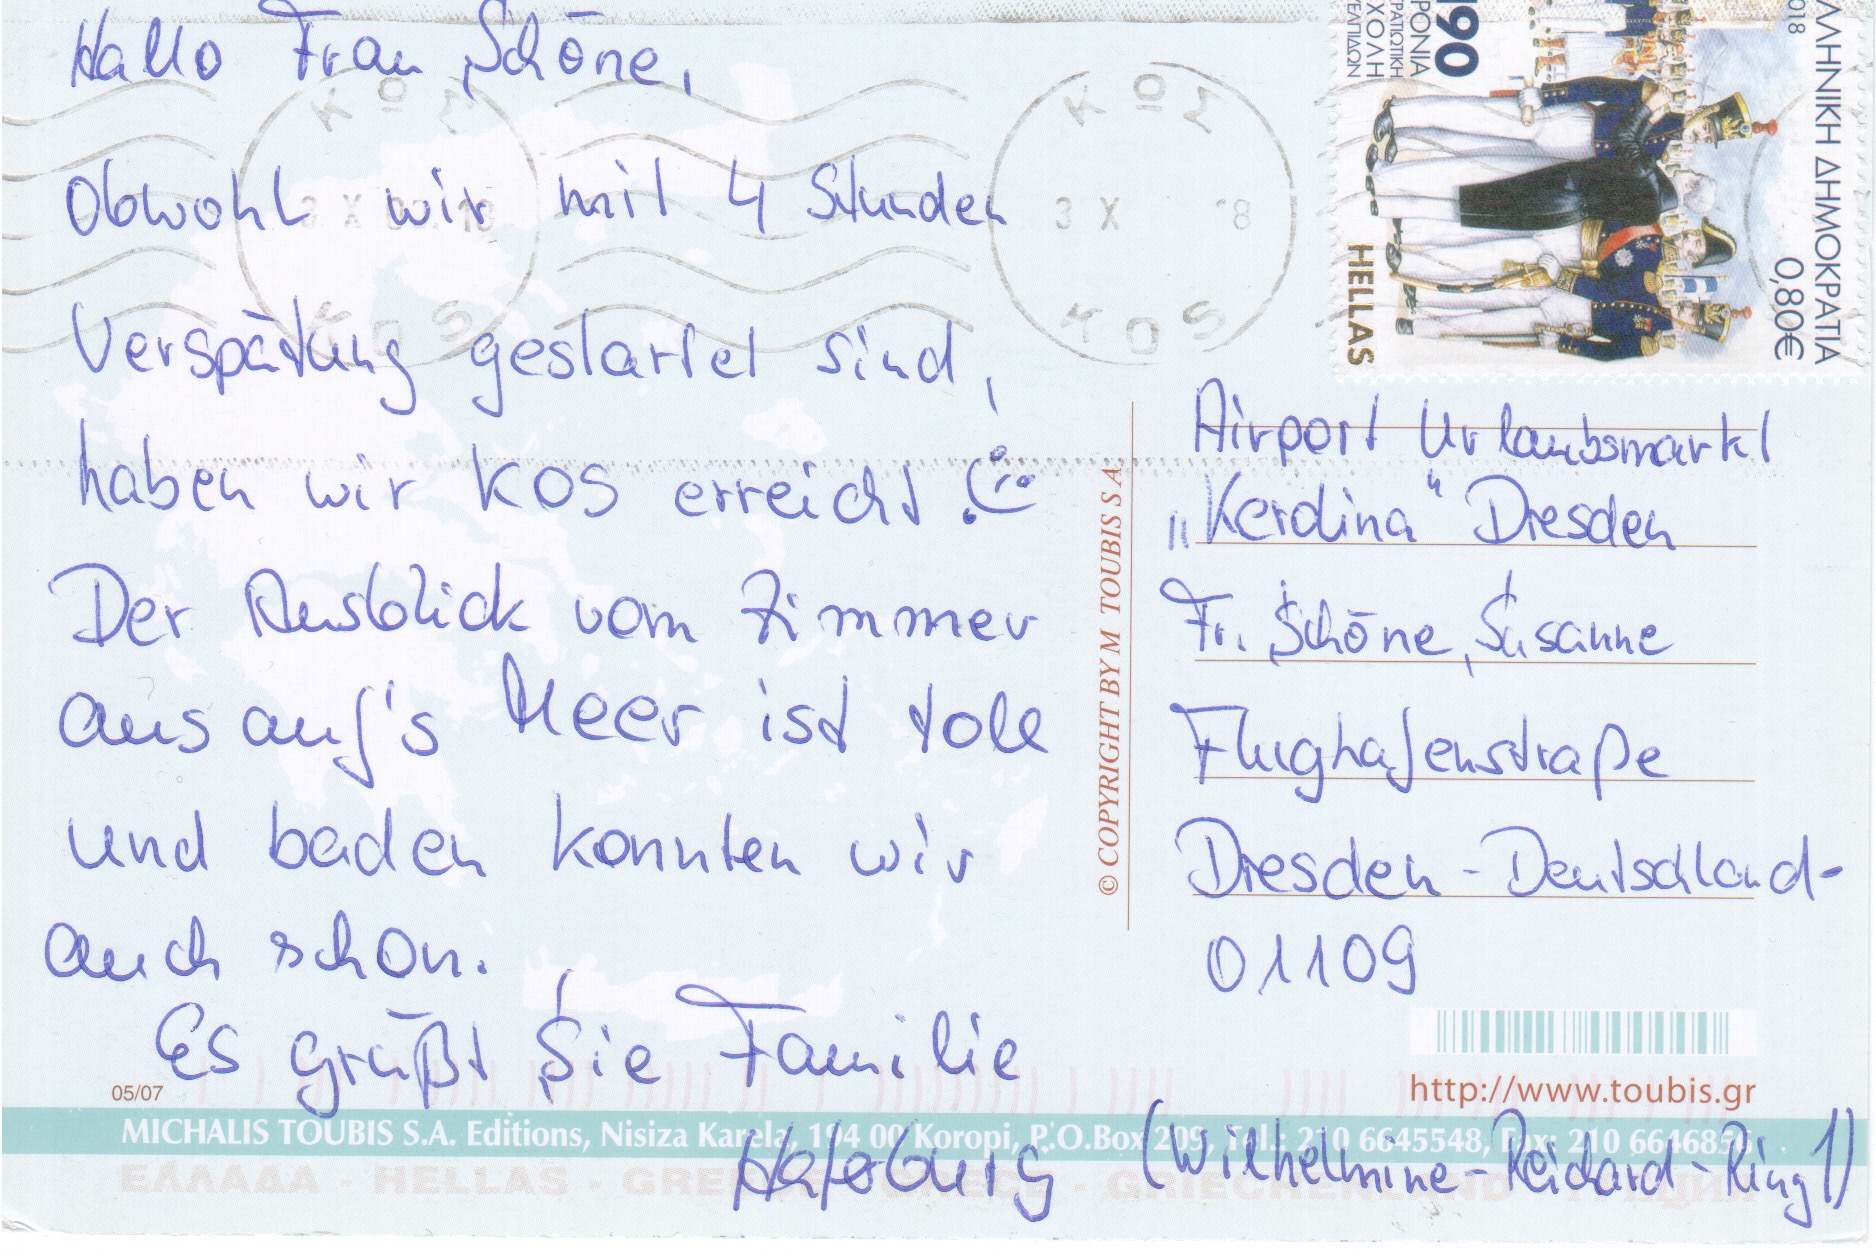 Hallo Frau Schöne,
Obwohl wir mit 4 Stunden
Verspätung gestartet sind,
haben wir KOS erreicht!
Der Ausblick vom Zimmer
aus auf's Meer ist toll
und baden konnten wir
auch schon.
Es grüßt Sie Familie
(Wilhelmine-Reichard-Ring 1)
ΚΩΣ
3 X
18
KOS
ΚΩΣ
3 X 8
KOS
190
ΕΛΛΗΝΙΚΗ ΔΗΜΟΚΡΑΤΙΑ
0,80€
HELLAS
2018
© COPYRIGHT BY M TOUBIS S A
Airport Urlaubsmarkt
„Kerdina“ Dresden
Fr. Schöne, Susanne
Flughafenstraße
Dresden - Deutschland -
01109
http://www.toubis.gr
05/07
MICHALIS TOUBIS S.A. Editions, Nisiza Karela, 194 00 Koropi, P.O.Box 209, Tel.: 210 6645548, Fax: 210 6646856
ΕΛΛΑΔΑ - HELLAS - GREECE - GRECE - GRIECHENLAND